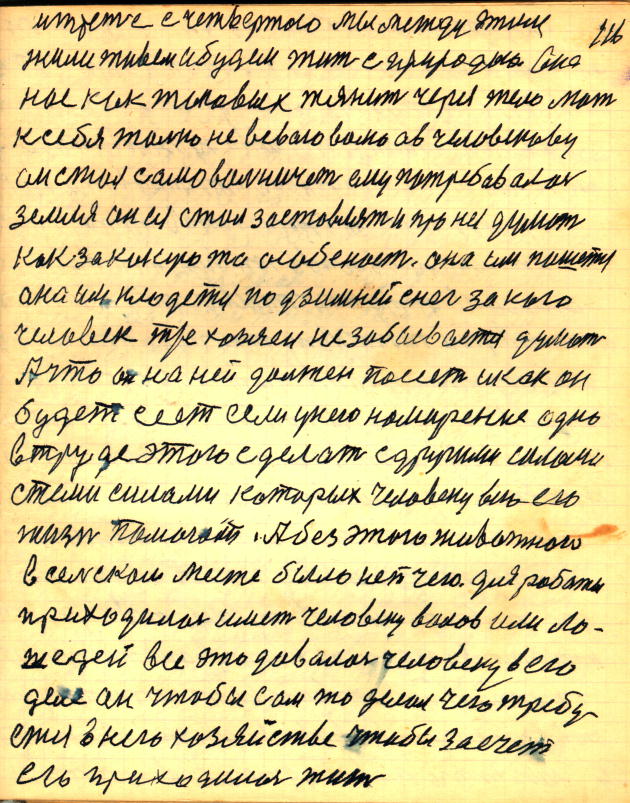 итретe с четвертого мы между этим 116
жили живем и будем жит с природою Она
нас как таковых тянет через тело мат
к себя толко не всваговамо ов человекову
он стал самоволничет ему потребавалас
земля он ея стал заставлят и про неё думат
как за какую та особеност. она им пашетя
она им кладетя под зимней снег за кого
человек тре хозяен не забываетя думат
А что он на ней должен посеет и как он
будет сеет если у него намирение одно
в труде этого сделат с другими силами
с теми силами которых человеку в его
жизн помогат. А без этого животного
в селском месте было нет чего. для работы
приходилас имет человеку валов или ло-
шедей все это давалас человеку в его
деле он чтобы сам то делал чего требу
етя в него хозяйстве чтобы за счет
его приходилас жит